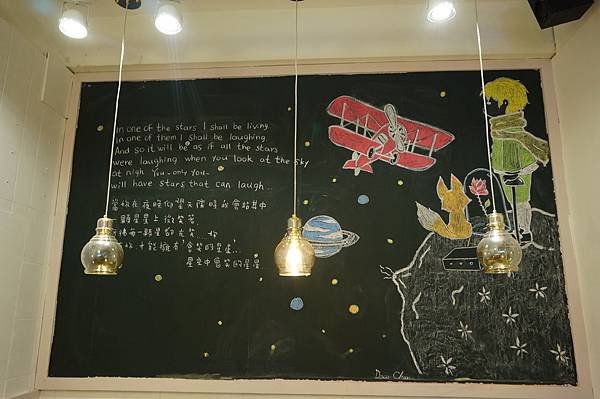 In one of the stars I shall be living
In one of them I shall be laughing
And so it will be as if all the stars
were laughing when you look at the sky
at nigh You - only you -
will have stars that can laugh...
當你在夜晚仰望天際時我會站其中
一顆星星上微笑著
每一顆星都在笑... 你
你才能擁有會笑的星星...
星空中會笑的星星